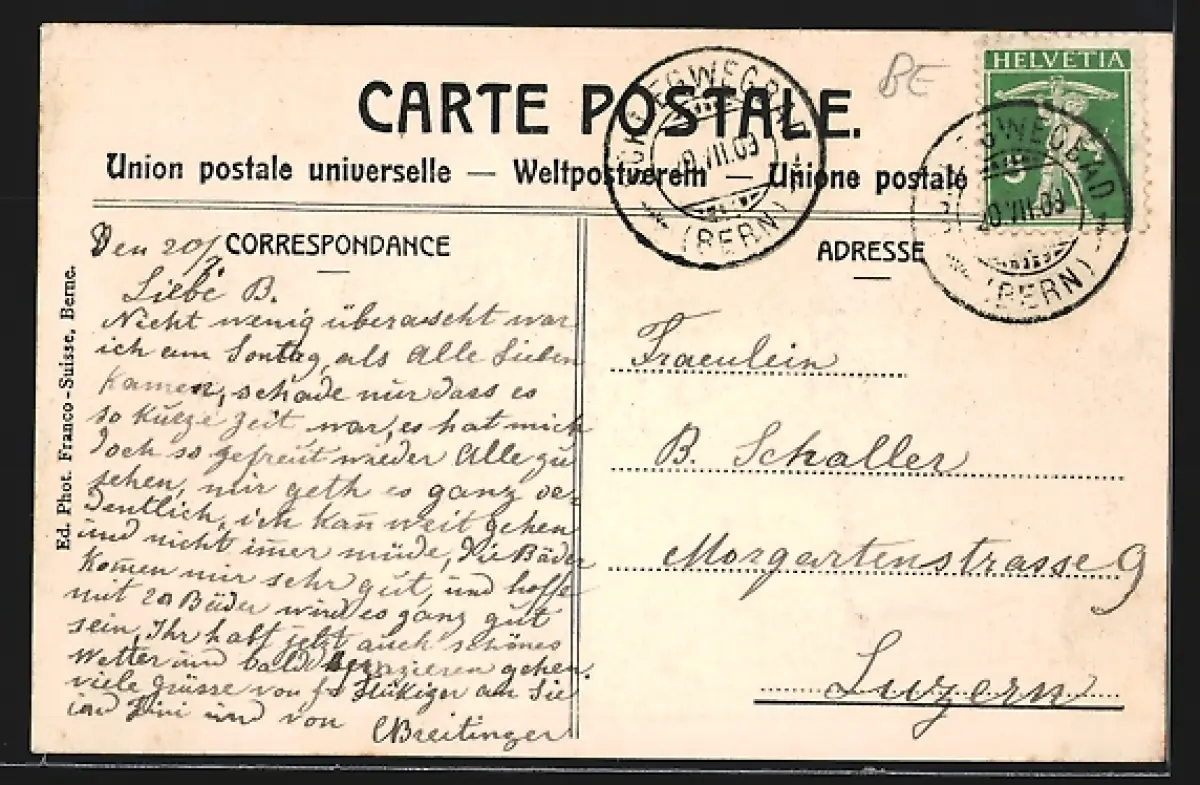 CARTE POSTALE.
BE
HELVETIA
5
Union postale universelle — Weltpostverein — Unione postale
EGWEGBAD
20.VII.09
(BERN)
GWEGBAD
20.VII.09
(BERN)
CORRESPONDANCE
ADRESSE
Ed. Phot. Franco-Suisse, Berne.
Den 20/7
Liebe B.
Nicht wenig überascht war
ich am Sontag, als Alle Lieben
kamen, schade nur dass es
so kurze Zeit war, es hat mich
doch so gefreut wieder Alle zu
sehen, mir geth es ganz or-
dentlich, ich kan̄ weit gehen
und nicht im̄er müde, die Bäder
komen mir sehr gut, und hoffe
mit 20 Bäder wird es ganz gut
sein, Ihr habt jetzt auch schönes
Wetter und bald spazieren gehen.
viele Grüsse von fr Flükiger an Sie
und Lini und von
CBreitinger
Fraeulein
B. Schaller
Morgartenstrasse 9
Luzern